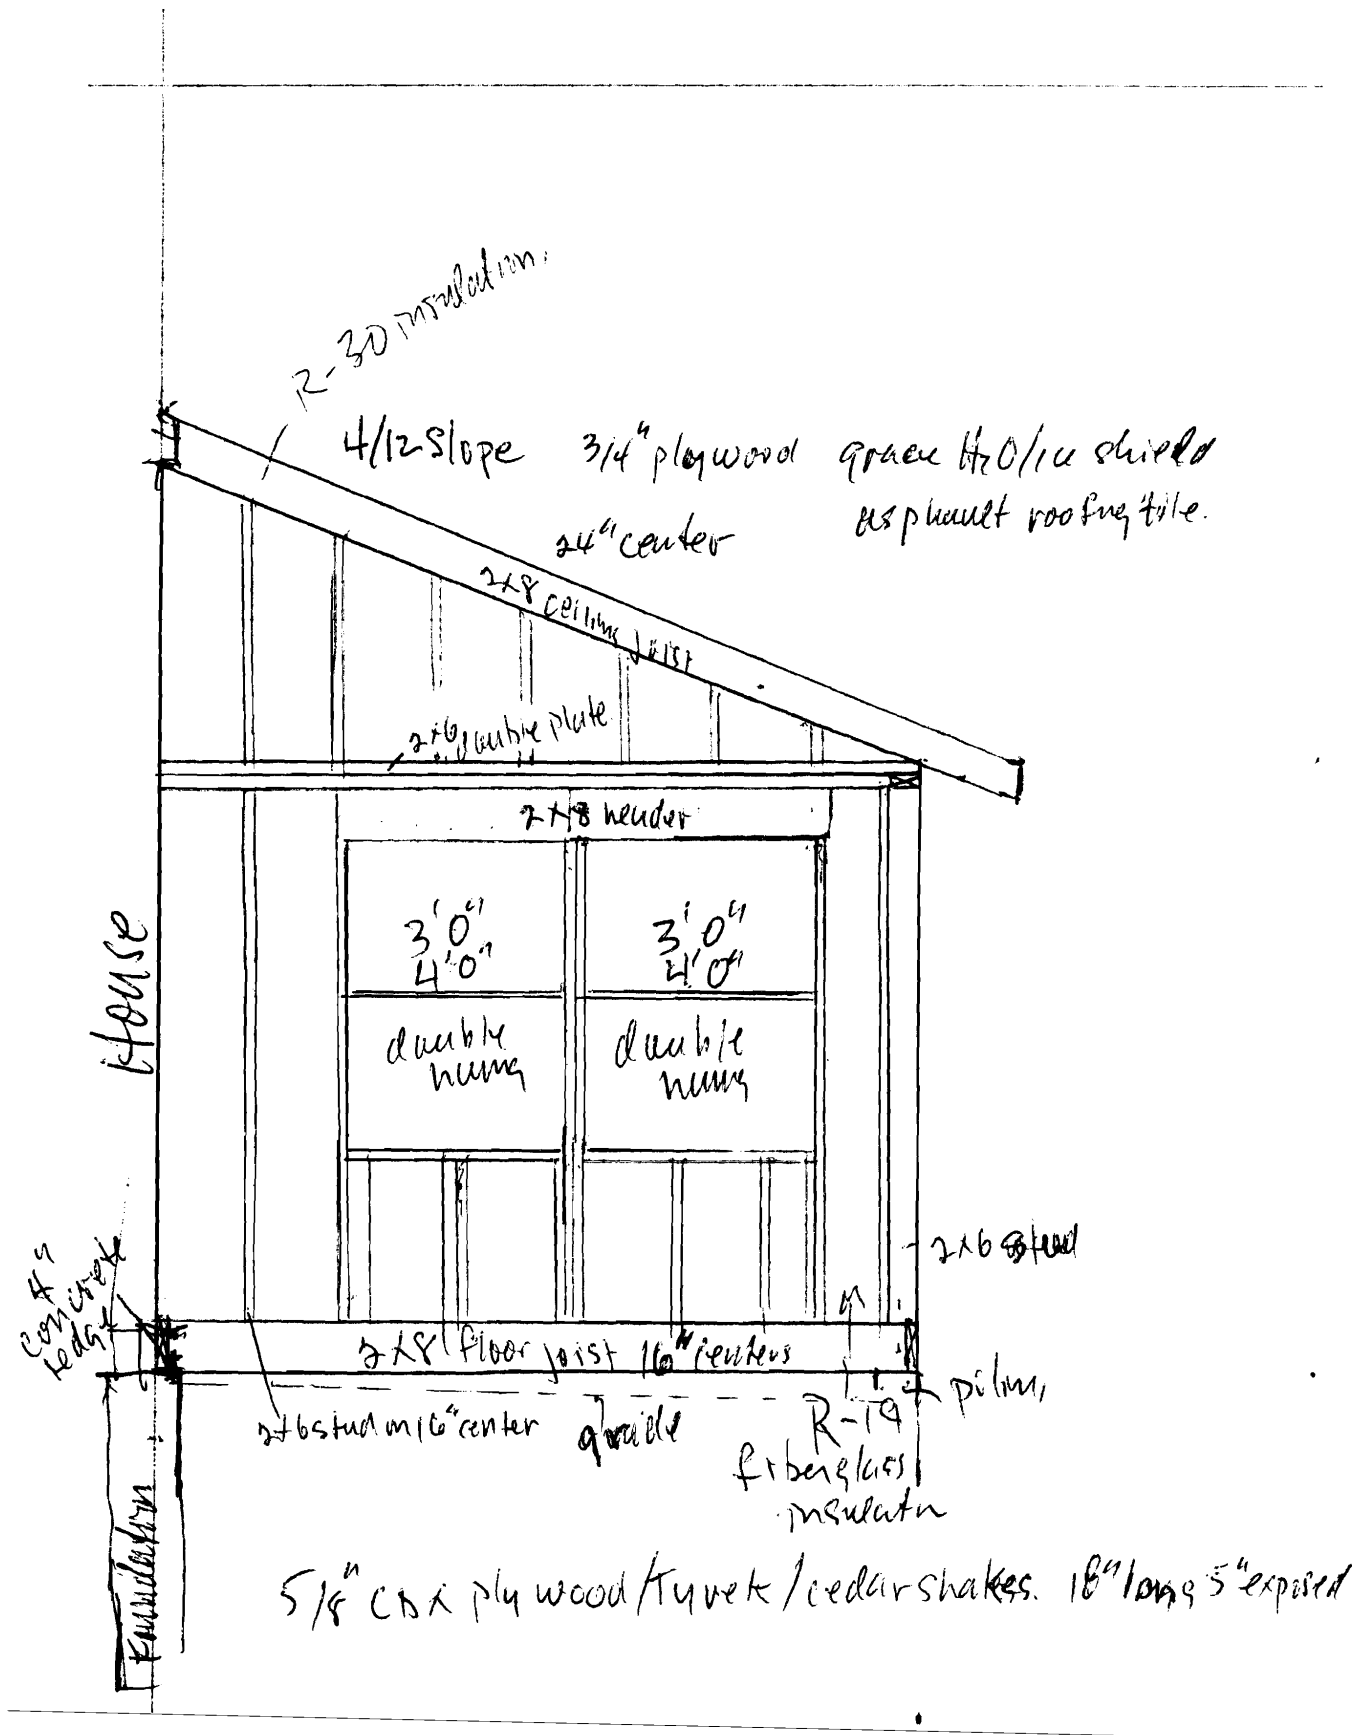 R-30 insulation.
4/12 slope 3/4" plywood grace H2O/ice shield
asphault roofing tile.
24" center
2x8 ceiling joist
2x6 double plate
2x8 header
3'0" 3'0"
4'0" 4'0"
double double
hung hung
House
4"
concrete
ledge
2x6 stud
2x8 floor joist 16" centers
2x6 stud on 16" center grade
R-19
fiberglass
insulatn
Foundation
5/8" CDX plywood/Tyvek/cedar shakes. 18" long 5" exposed